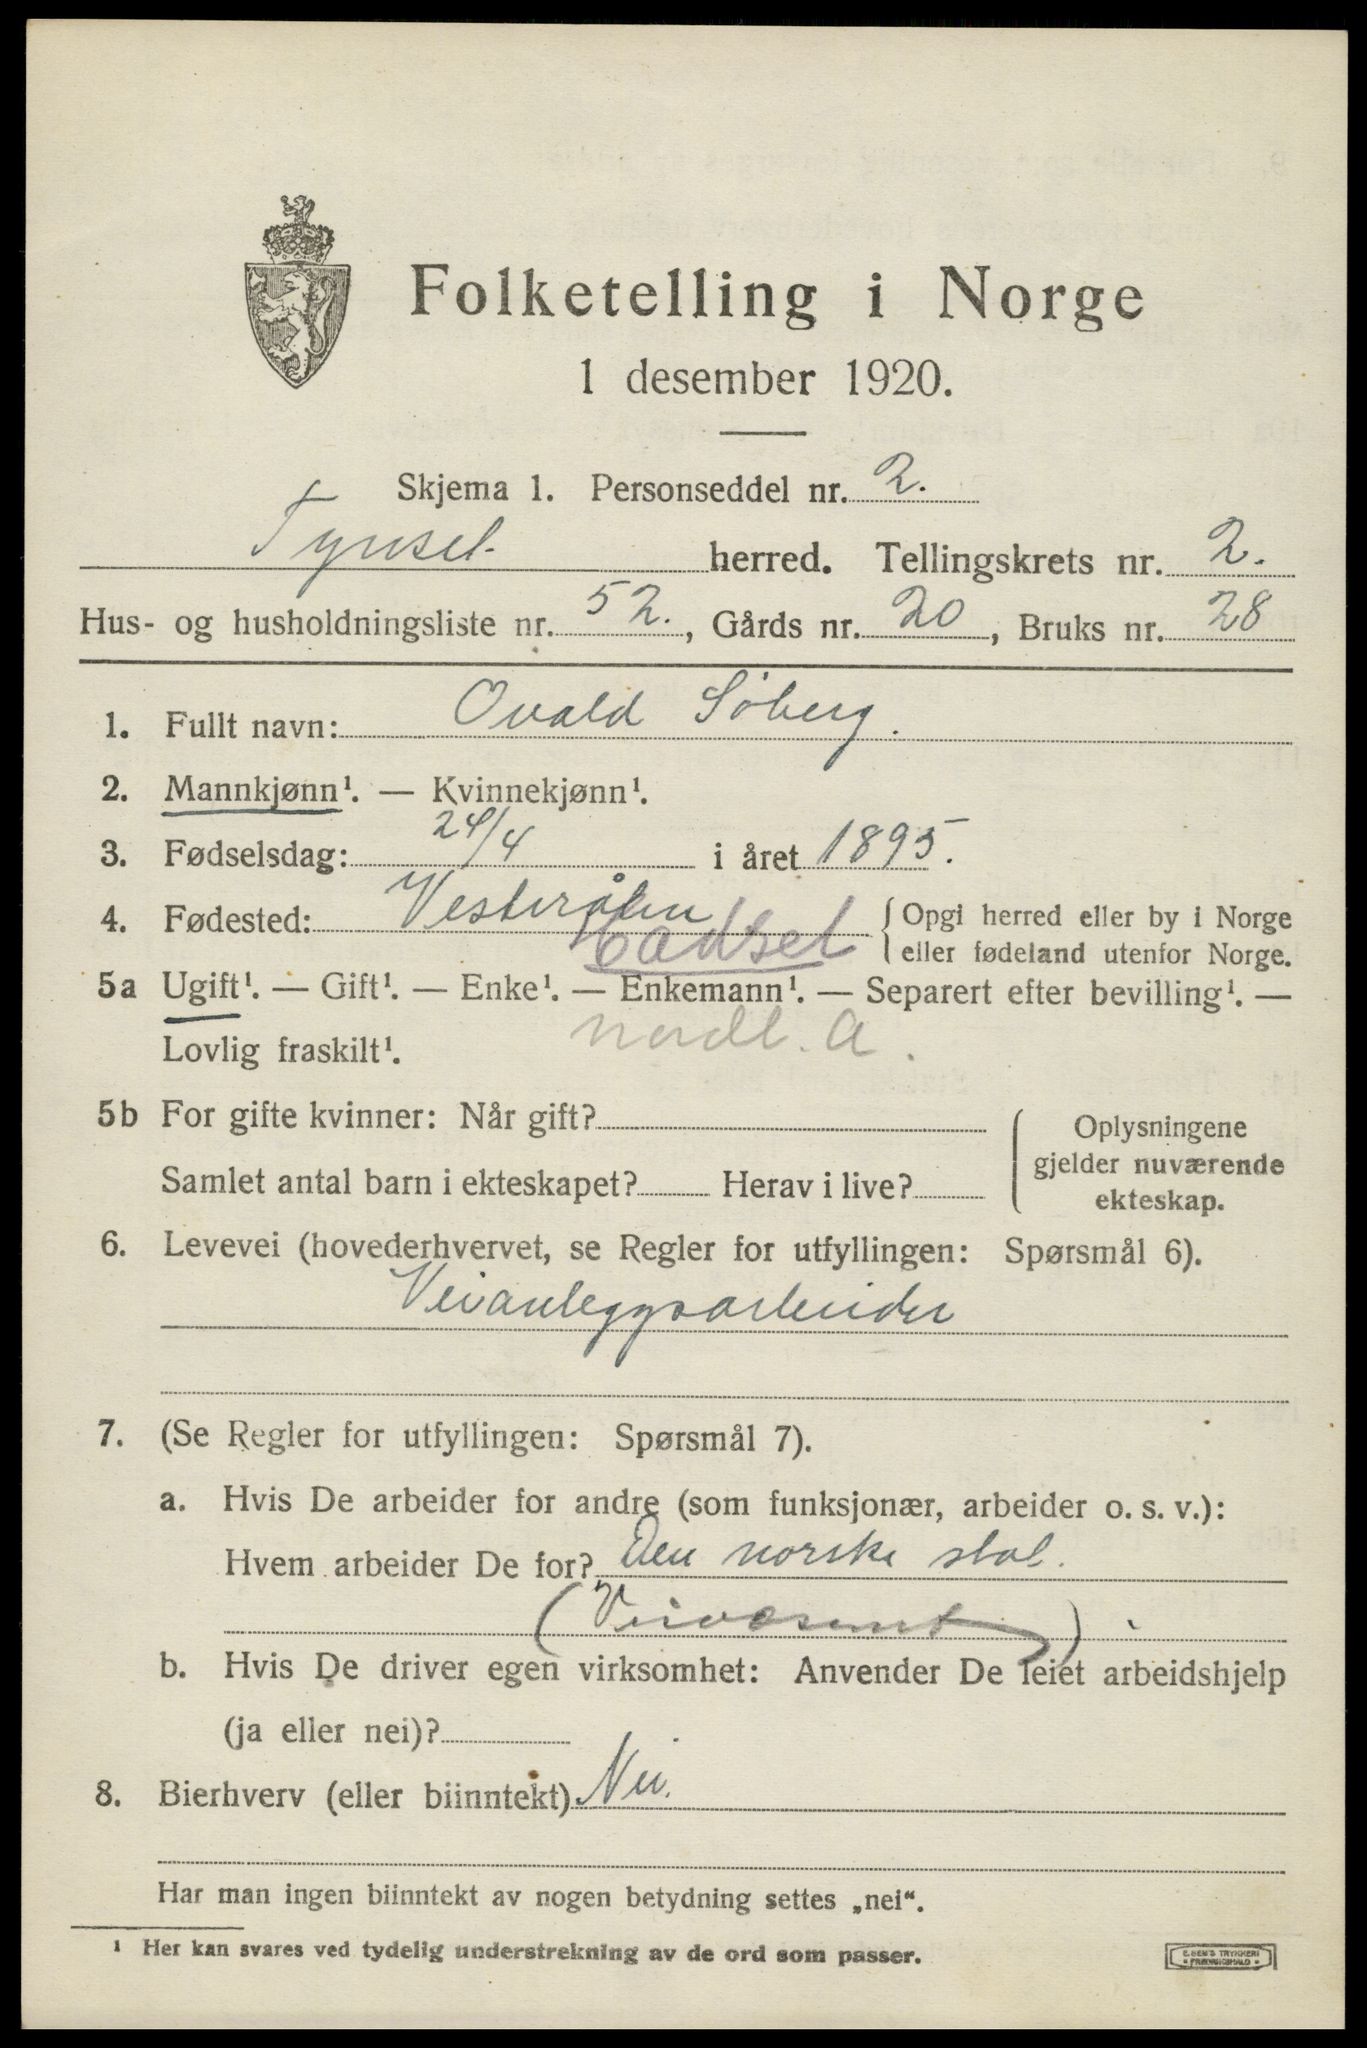 Folketelling i Norge
1 desember 1920.
Skjema 1. Personseddel nr. 2.
Tynset herred. Tellingskrets nr. 2.
Hus- og husholdningsliste nr. 52., Gårds nr. 20, Bruks nr. 28
1. Fullt navn: Ovald Söberg.
2. Mannkjønn¹. — Kvinnekjønn¹.
3. Fødselsdag: 24/4 i året 1895.
4. Fødested: Vesterålen { Opgi herred eller by i Norge
Hadsel eller fødeland utenfor Norge.
5a Ugift¹. — Gift¹. — Enke¹. — Enkemann¹. — Separert efter bevilling¹. —
Nordl. A.
Lovlig fraskilt¹.
5b For gifte kvinner: Når gift? Oplysningene
gjelder nuværende
Samlet antal barn i ekteskapet? Herav i live? ekteskap.
6. Levevei (hovederhvervet, se Regler for utfyllingen: Spørsmål 6).
Veianleggsarbeider
7. (Se Regler for utfyllingen: Spørsmål 7).
a. Hvis De arbeider for andre (som funksjonær, arbeider o. s. v.):
Hvem arbeider De for? Den norske stat.
(Veivesenet)
b. Hvis De driver egen virksomhet: Anvender De leiet arbeidshjelp
(ja eller nei)?
8. Bierhverv (eller biinntekt) Nei.
Har man ingen biinntekt av nogen betydning settes „nei“.
¹ Her kan svares ved tydelig understrekning av de ord som passer.